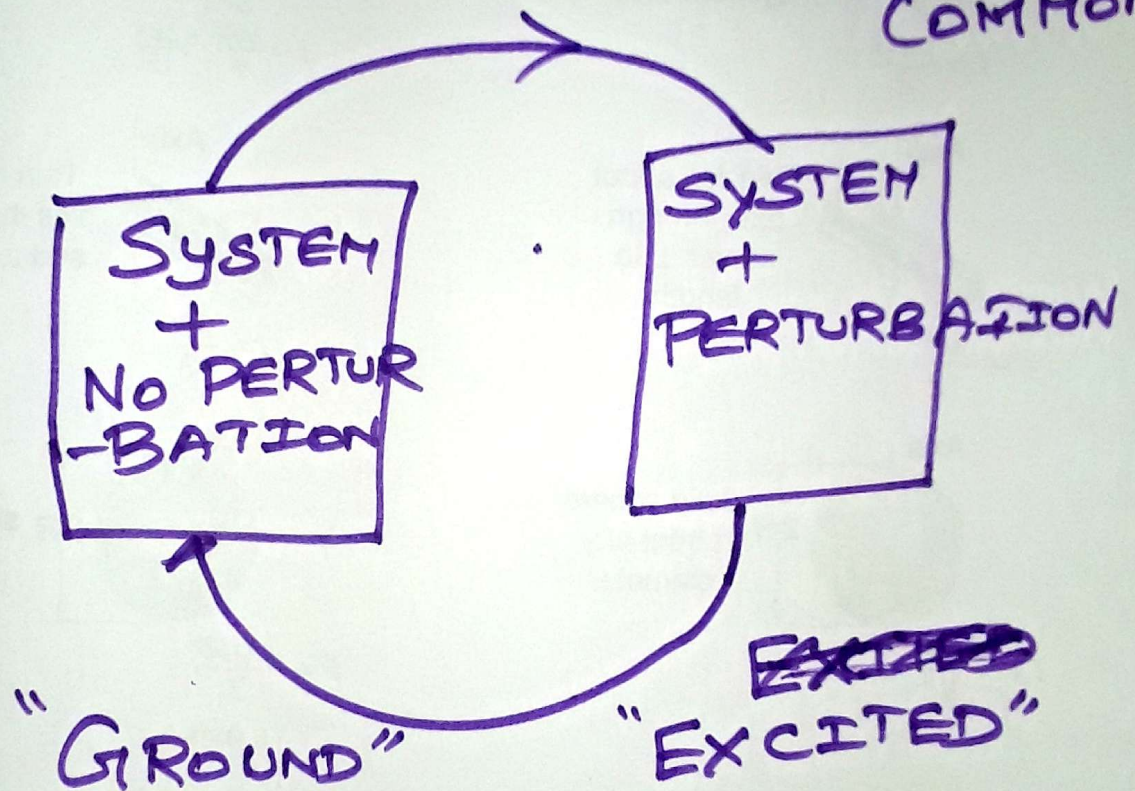 COMMON
SYSTEM
+
NO PERTUR
-BATION
SYSTEM
+
PERTURBATION
EXCITED
"EXCITED"
"GROUND"